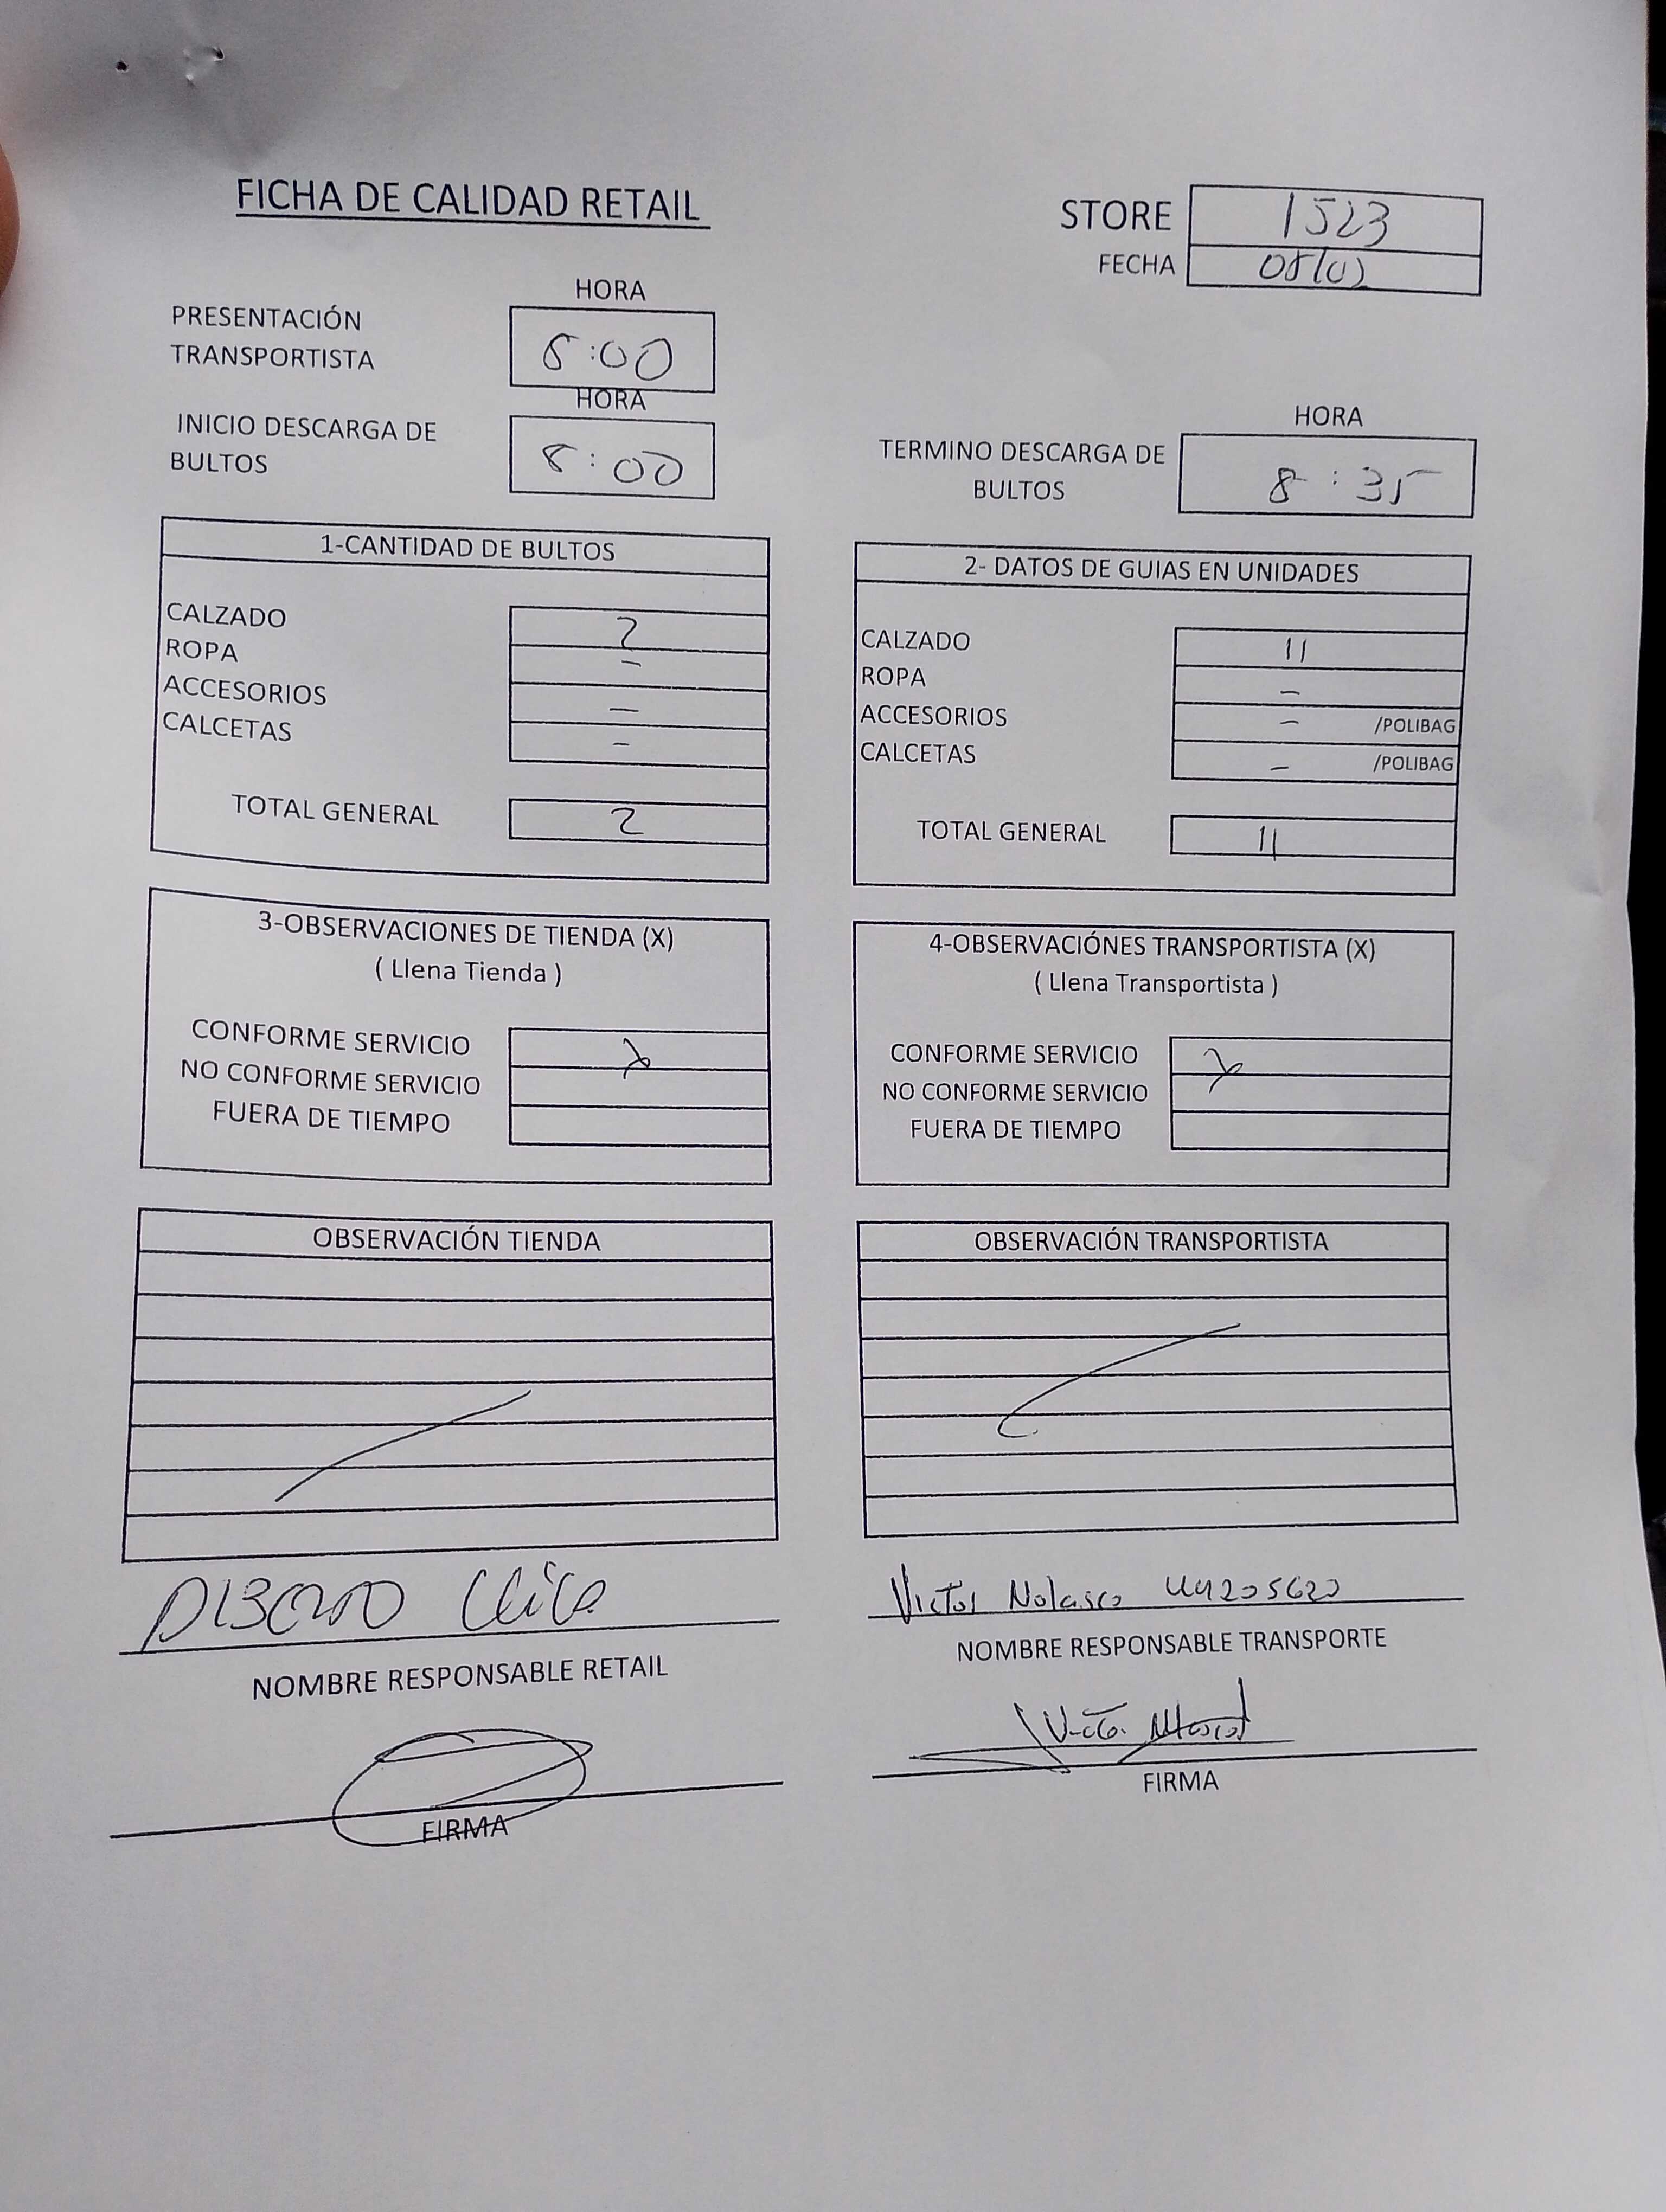 FICHA DE CALIDAD RETAIL
STORE 1523
FECHA
HORA
PRESENTACIÓN TRANSPORTISTA 8:00
HORA
INICIO DESCARGA DE BULTOS 8:00
HORA
TERMINO DESCARGA DE BULTOS 8:35
1-CANTIDAD DE BULTOS
CALZADO 2
ROPA -
ACCESORIOS -
CALCETAS -
TOTAL GENERAL 2
2- DATOS DE GUIAS EN UNIDADES
CALZADO 11
ROPA -
ACCESORIOS - /POLIBAG
CALCETAS - /POLIBAG
TOTAL GENERAL 11
3-OBSERVACIONES DE TIENDA (X)
( Llena Tienda )
CONFORME SERVICIO X
NO CONFORME SERVICIO
FUERA DE TIEMPO
4-OBSERVACIÓNES TRANSPORTISTA (X)
( Llena Transportista )
CONFORME SERVICIO X
NO CONFORME SERVICIO
FUERA DE TIEMPO
OBSERVACIÓN TIENDA
OBSERVACIÓN TRANSPORTISTA
NOMBRE RESPONSABLE RETAIL
FIRMA
Victor Nolasco
NOMBRE RESPONSABLE TRANSPORTE
FIRMA